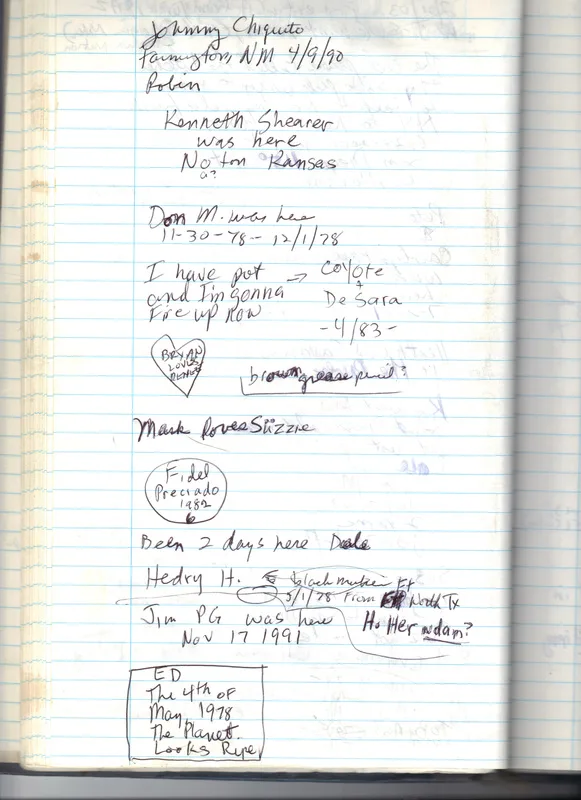 Johnny Chiquito
Farmington, NM 4/9/90
Robin
Kenneth Shearer
was here
No ton Kansas
a?
Don M. was here
11-30-78 - 12/1/78
I have pot → Coyote
and I'm gonna +
Fire up now De Sara
-4/83-
BRYAN
LOVES
brown grease pencil?
Mark loves Süzzie
Fidel
Preciado
1982
6
Been 2 days here Dale
Hedry H. black
5/1/78 From North Tx
Jim PG was here
Nov 17 1991
Ho Her
ED
The 4th of
May, 1978
The Planet
Looks Ripe